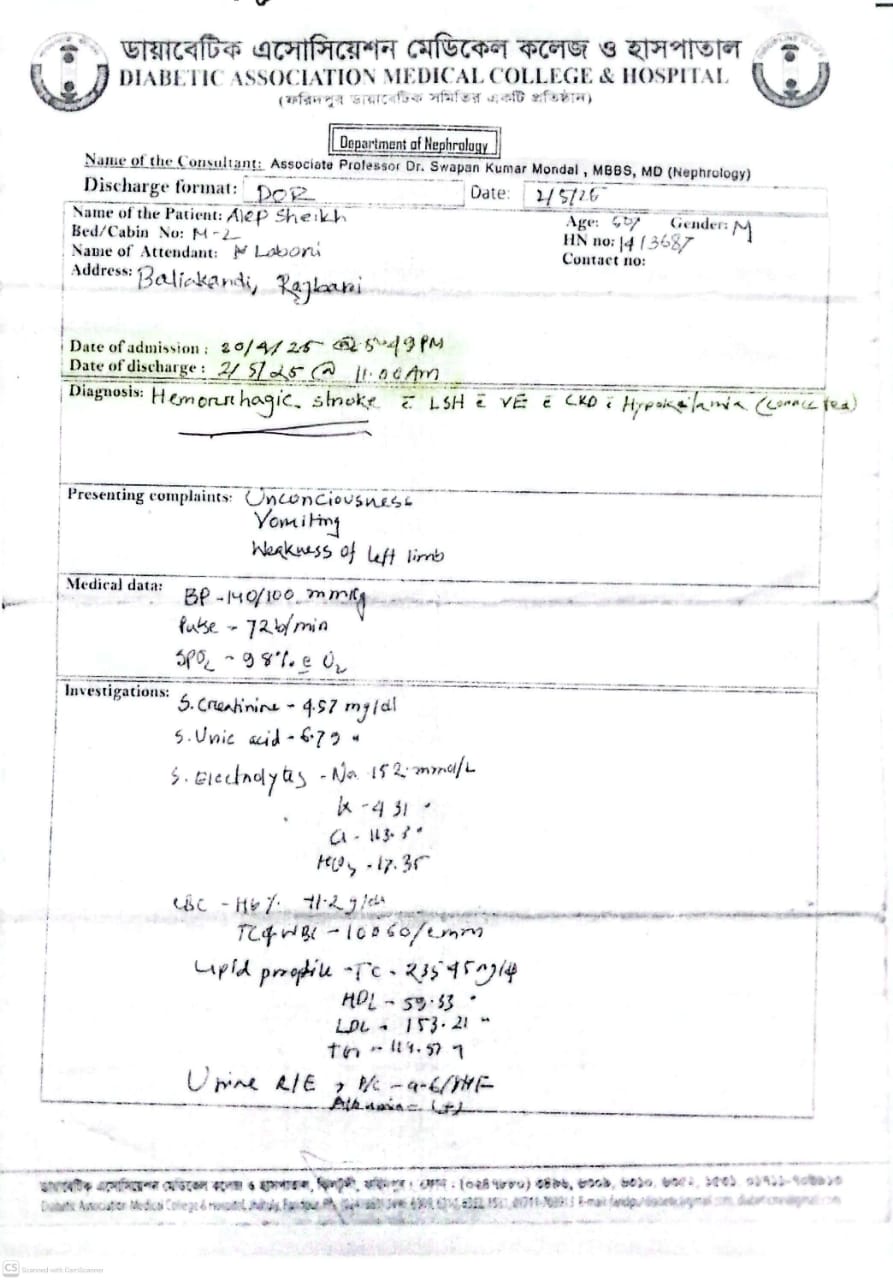 ডায়াবেটিক এসোসিয়েশন মেডিকেল কলেজ ও হাসপাতাল
DIABETIC ASSOCIATION MEDICAL COLLEGE & HOSPITAL
(ফরিদপুর ডায়াবেটিক সমিতির একটি প্রতিষ্ঠান)
Department of Nephrology
Name of the Consultant: Associate Professor Dr. Swapan Kumar Mondal , MBBS, MD (Nephrology)
Discharge format: DOR Date: 2/5/25
Name of the Patient: Alep Sheikh Age: 60y Gender: M
Bed/Cabin No: M-2 HN no: 1413687
Name of Attendant: Laboni Contact no:
Address: Baliakandi, Rajbari
Date of admission : 20/4/25 @ 5:49 PM
Date of discharge : 2/5/25 @ 11.00 Am
Diagnosis: Hemorrhagic stroke c̄ LSH c̄ VE c̄ CKD c̄ Hypokalamia (corrected)
Presenting complaints: Unconciousness
Vomiting
Weakness of left limb
Medical data: BP - 140/100 mmHg
Pulse - 72 b/min
SPO2 - 98% c̄ O2
Investigations: S. Creatinine - 4.57 mg/dl
S. Uric acid - 6.79 "
S. Electrolytes - Na 152 mmol/L
K - 4.31 "
Cl - 113.3 "
HCO3 - 17.35
CBC - Hb% 11.2 g/dl
TC of WBC - 10060/cmm
Lipid proptile - TC - 235.95 mg/dl
HDL - 59.33 "
LDL - 153.21 "
TG - 114.57 "
Urine R/E → P/C - 4-6/HPF
Albumin - (+)
ডায়াবেটিক এসোসিয়েশন মেডিকেল কলেজ ও হাসপাতাল,
Diabetic Association Medical College & Hospital,
CS Scanned with CamScanner